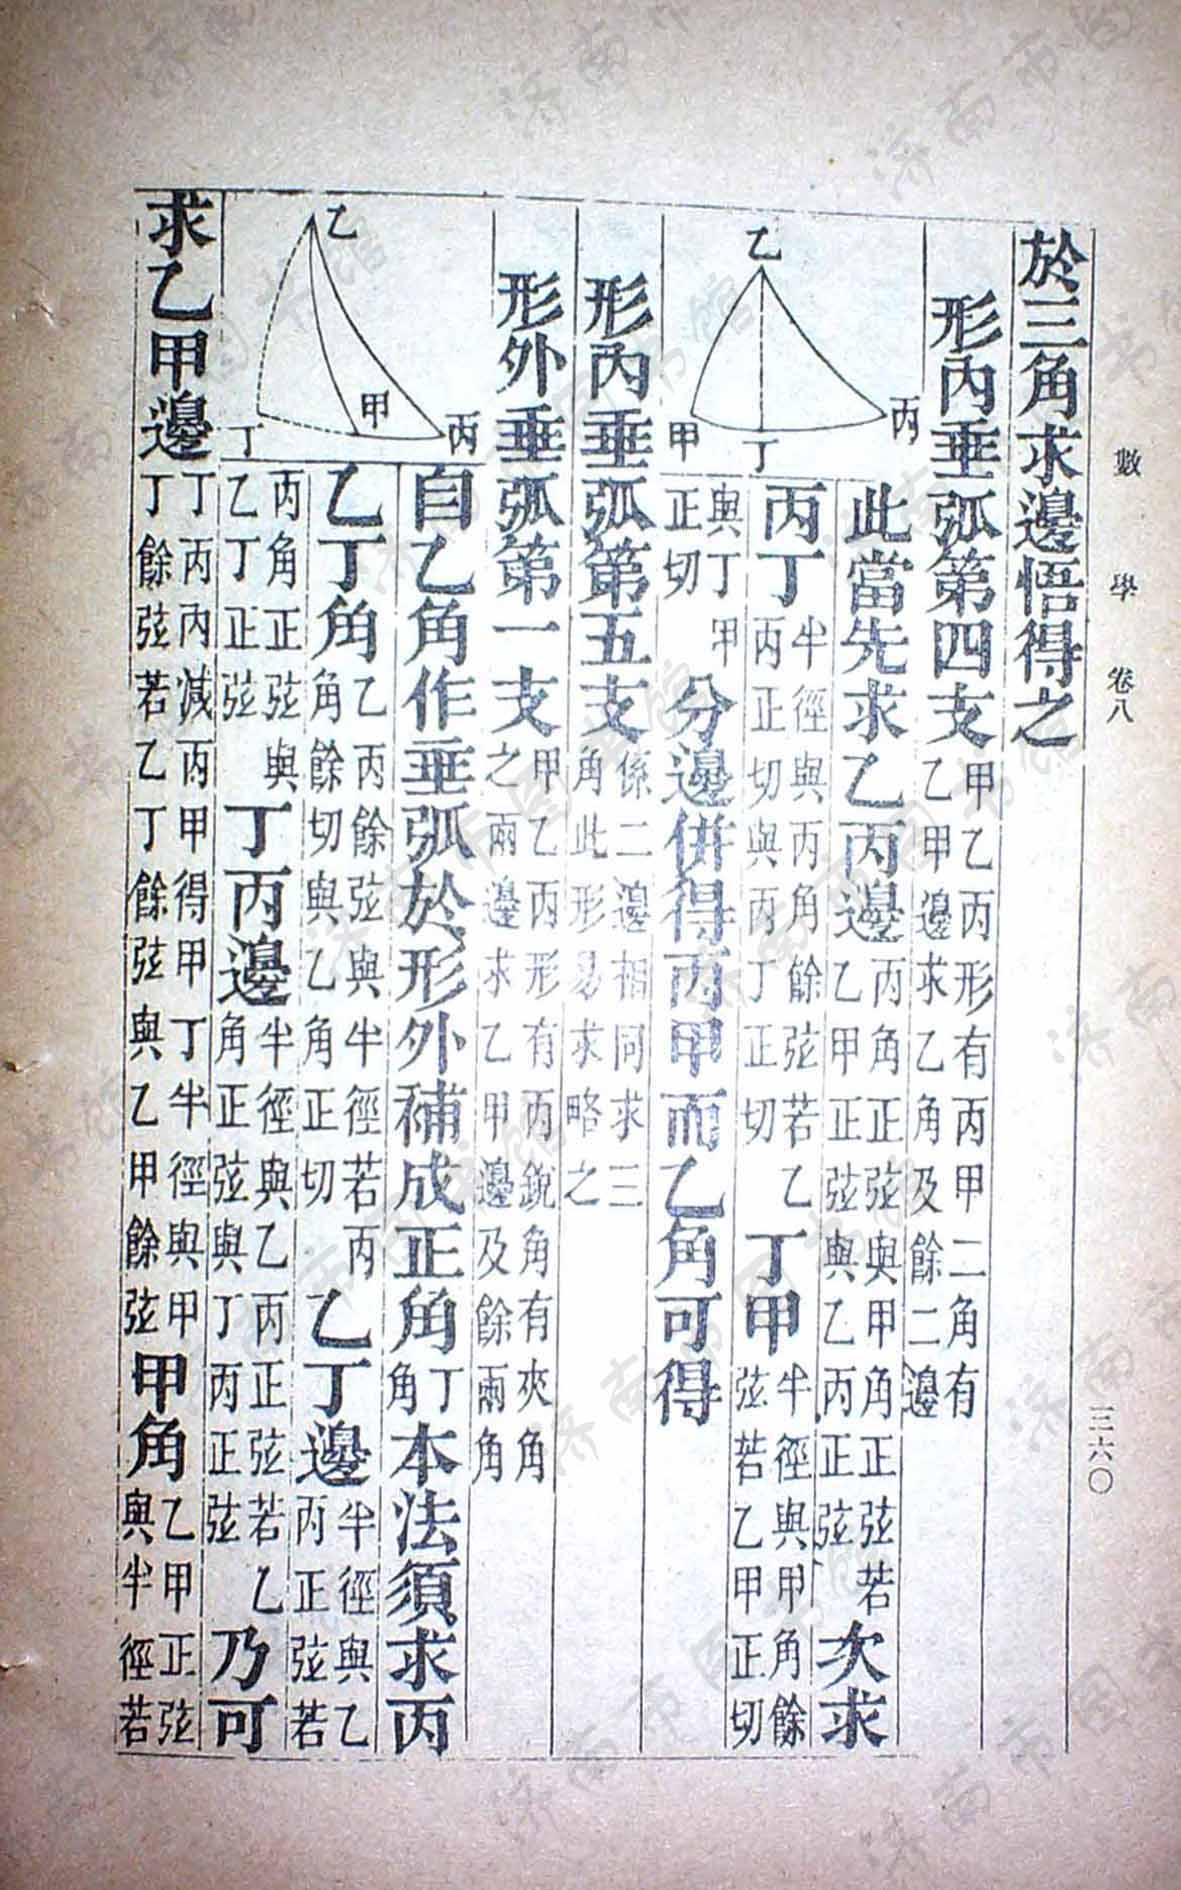 數學 卷八 三六〇
於三角求邊悟得之
形內垂弧第四支甲乙丙形有丙甲二角有乙甲邊求乙角及餘二邊
乙
甲
丁
丙
此當先求乙丙邊丙角正弦與甲角正弦若乙甲正弦與乙丙正弦次求
丙丁半徑與丙角餘弦若乙丙正切與丙丁正切丁甲半徑與甲角餘弦若乙甲正切
與丁甲正切分邊併得丙甲而乙角可得
形內垂弧第五支係二邊相同求三角此形易求略之
形外垂弧第一支甲乙丙形有丙銳角有夾角之兩邊求乙甲邊及餘兩角
乙
甲
丙
丁
自乙角作垂弧於形外補成正角丁角本法須求丙
乙丁角乙丙餘弦與半徑若丙角餘切與乙角正切乙丁邊半徑與乙丙正弦若
丙角正弦與乙丁正弦丁丙邊半徑與乙丙正弦若乙角正弦與丁丙正弦乃可
求乙甲邊丁丙內減丙甲得甲丁半徑與甲丁餘弦若乙丁餘弦與乙甲餘弦甲角乙甲正弦與半徑若
济南市图书馆